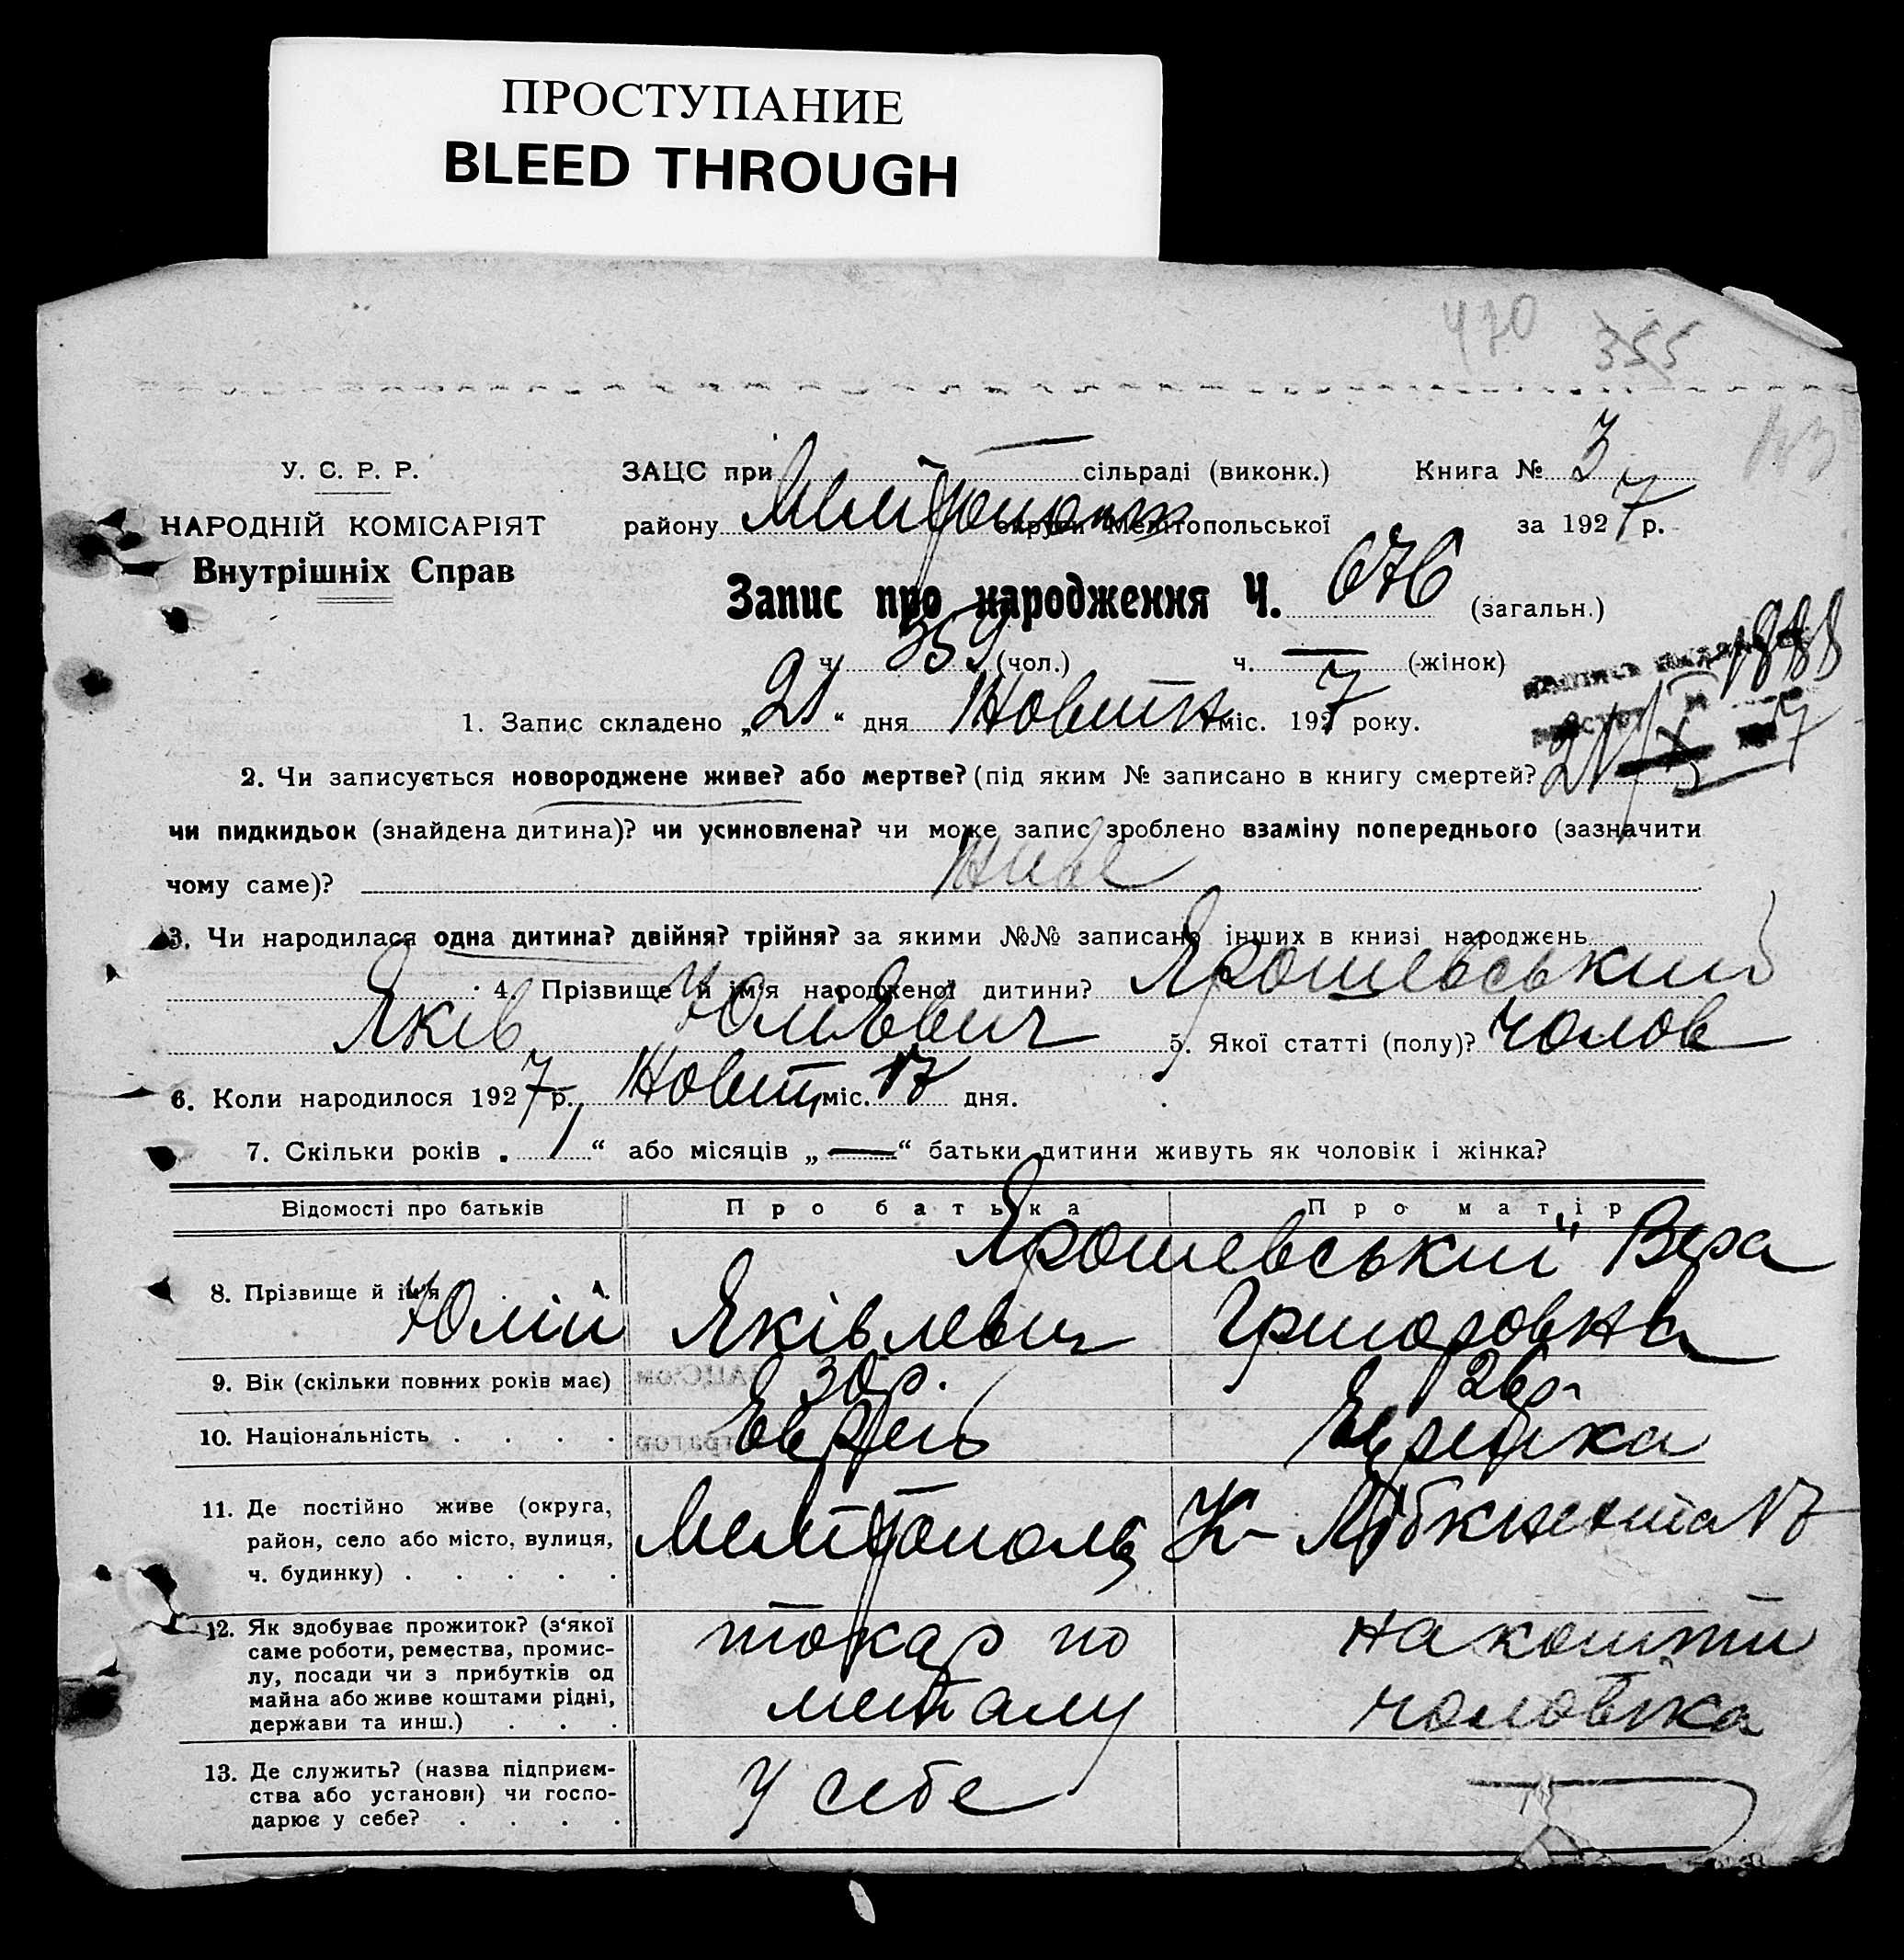 ПРОСТУПАНИЕ
BLEED THROUGH
470 355
У. С. Р. Р.
НАРОДНІЙ КОМІСАРІЯТ
Внутрішніх Справ
ЗАЦС при сільраді (виконк.) Книга № 3
району Мелітополь округи Мелітопольської за 1927 р.
Запис про народження Ч. 676 (загальн.)
ч. 359 (чол.) ч. — (жінок)
1888
1. Запис складено „21“ дня Жовтня міс. 1927 року.
21/X 7
2. Чи записується новороджене живе? або мертве? (під яким № записано в книгу смертей?
чи пидкидьок (знайдена дитина)? чи усиновлена? чи може запис зроблено взаміну попереднього (зазначити
чому саме)? живе
3. Чи народилася одна дитина? двійня? трійня? за якими №№ записано інших в книзі народжень
4. Прізвище й ім'я народженої дитини? Ярошевський
Яків Юлієвич 5. Якої статті (полу)? чолов
6. Коли народилося 1927 р. Жовтн міс. 17 дня.
7. Скільки років „1“ або місяців „—“ батьки дитини живуть як чоловік і жінка?
Відомості про батьків Про батька Про матір
8. Прізвище й ім'я Ярошевський Вера
Юлій Яківлевич Григоровна
9. Вік (скільки повних років має) 30 р. 26 р.
10. Національність . . . . Еврей Еврейка
11. Де постійно живе (округа,
район, село або місто, вулиця,
ч. будинку) . . . . .
Мелітополь К- 17
12. Як здобуває прожиток? (з'якої
саме роботи, ремества, промис-
лу, посади чи з прибутків од
майна або живе коштами рідні,
держави та инш.) . . .
токар по на кошти
металу чоловіка
13. Де служить? (назва підприєм-
ства або установи) чи госпо-
дарює у себе? . . . .
У себе